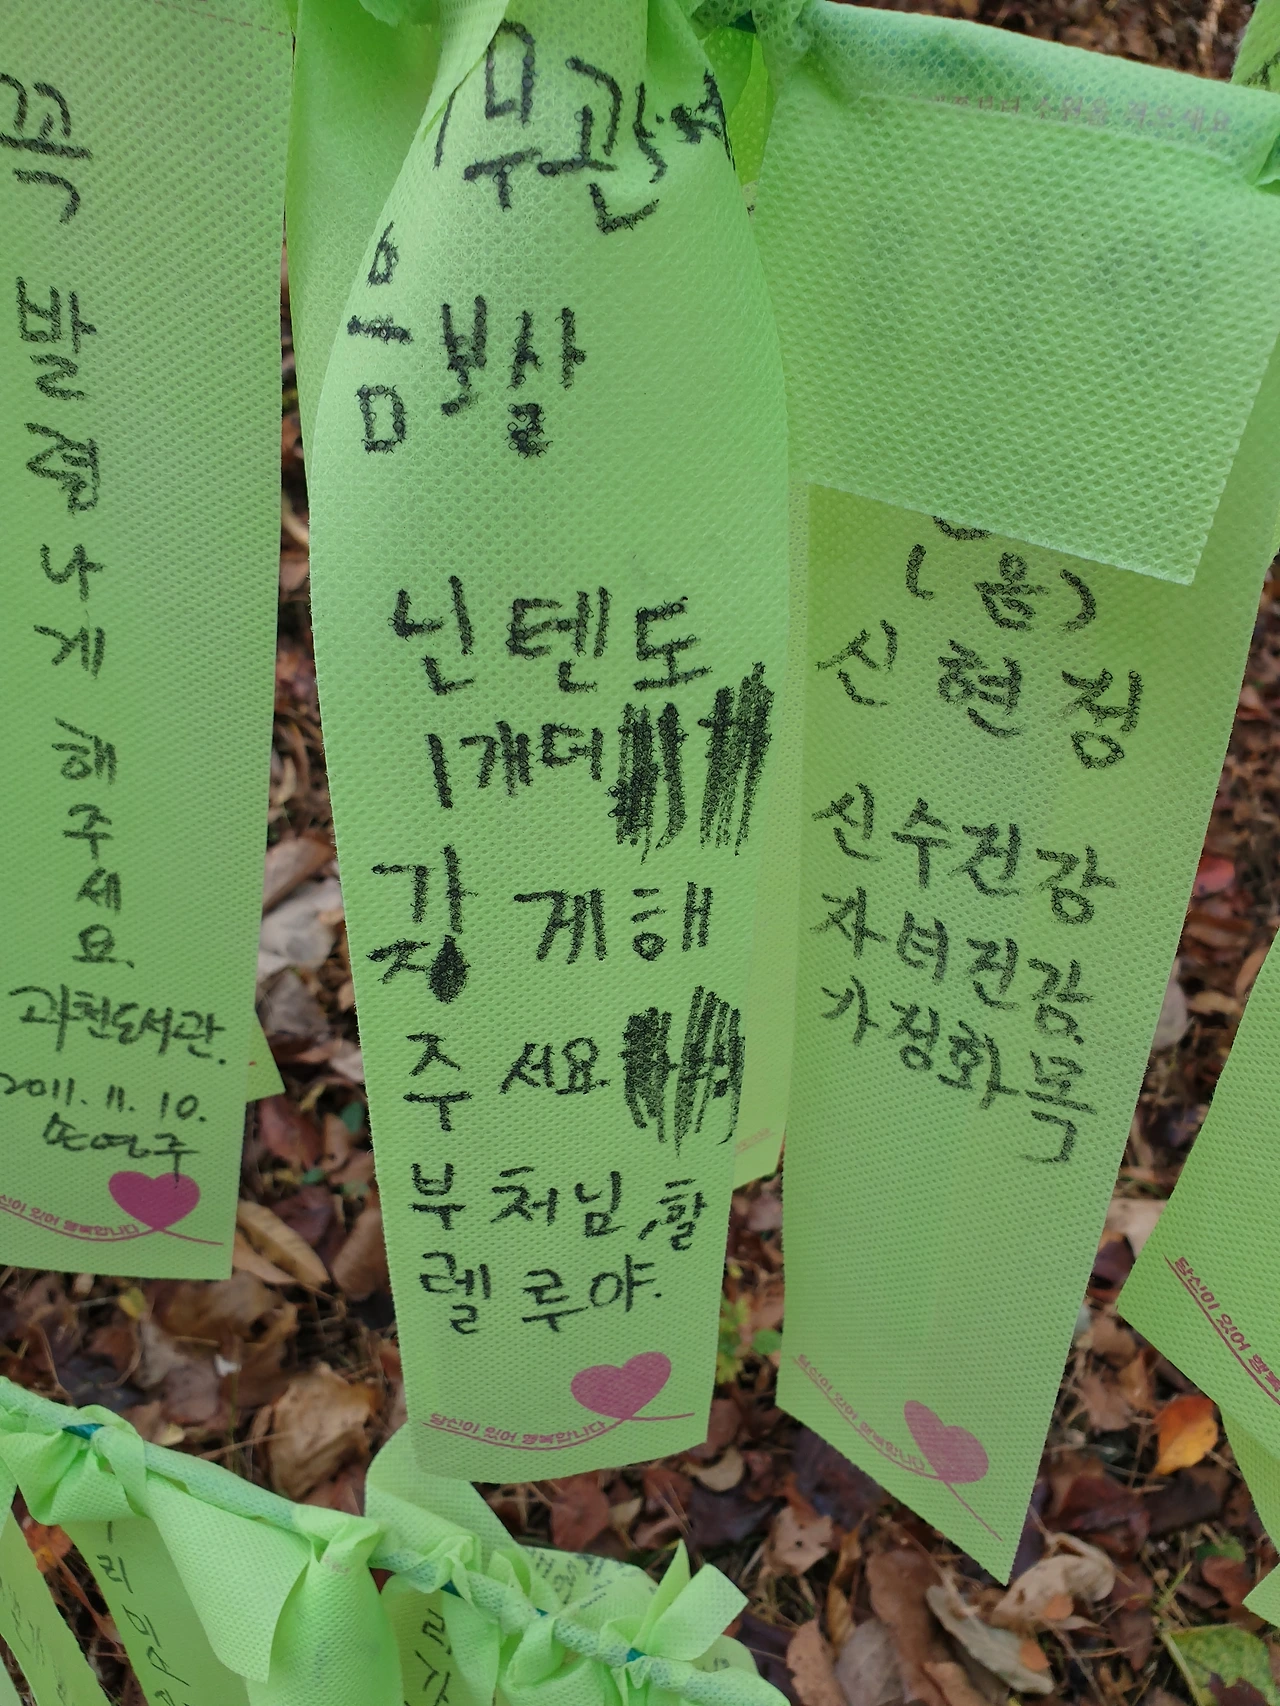 나
게
해
주
세
요.
과천도서관.
2011. 11. 10.
당신이 있어 행복합니다
무관세
음보살
닌텐도
1개더
갖게해
주서요
부처님,할
렐루야.
당신이 있어 행복합니다
소원을 적으세요
(음)
신현정
신수건강
자녀건강
가정화목
당신이 있어 행복합니다
당신이 있어 행복